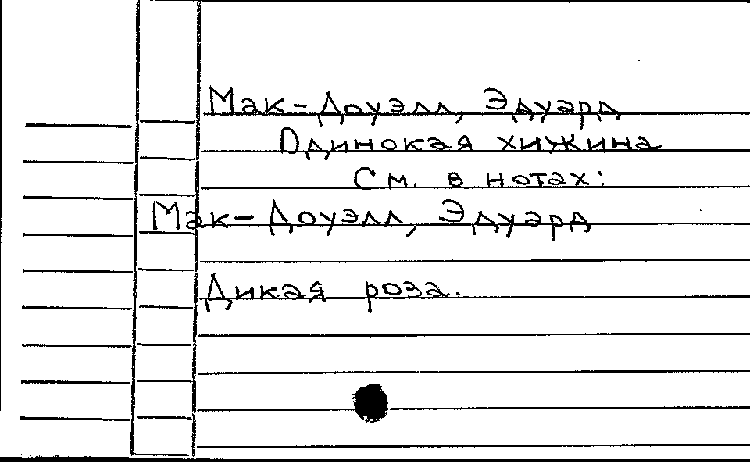 Мак-Доуэлл, Эдуард
Одинокая хижина
См. в нотах:
Мак-Доуэлл, Эдуард
Дикая роза.